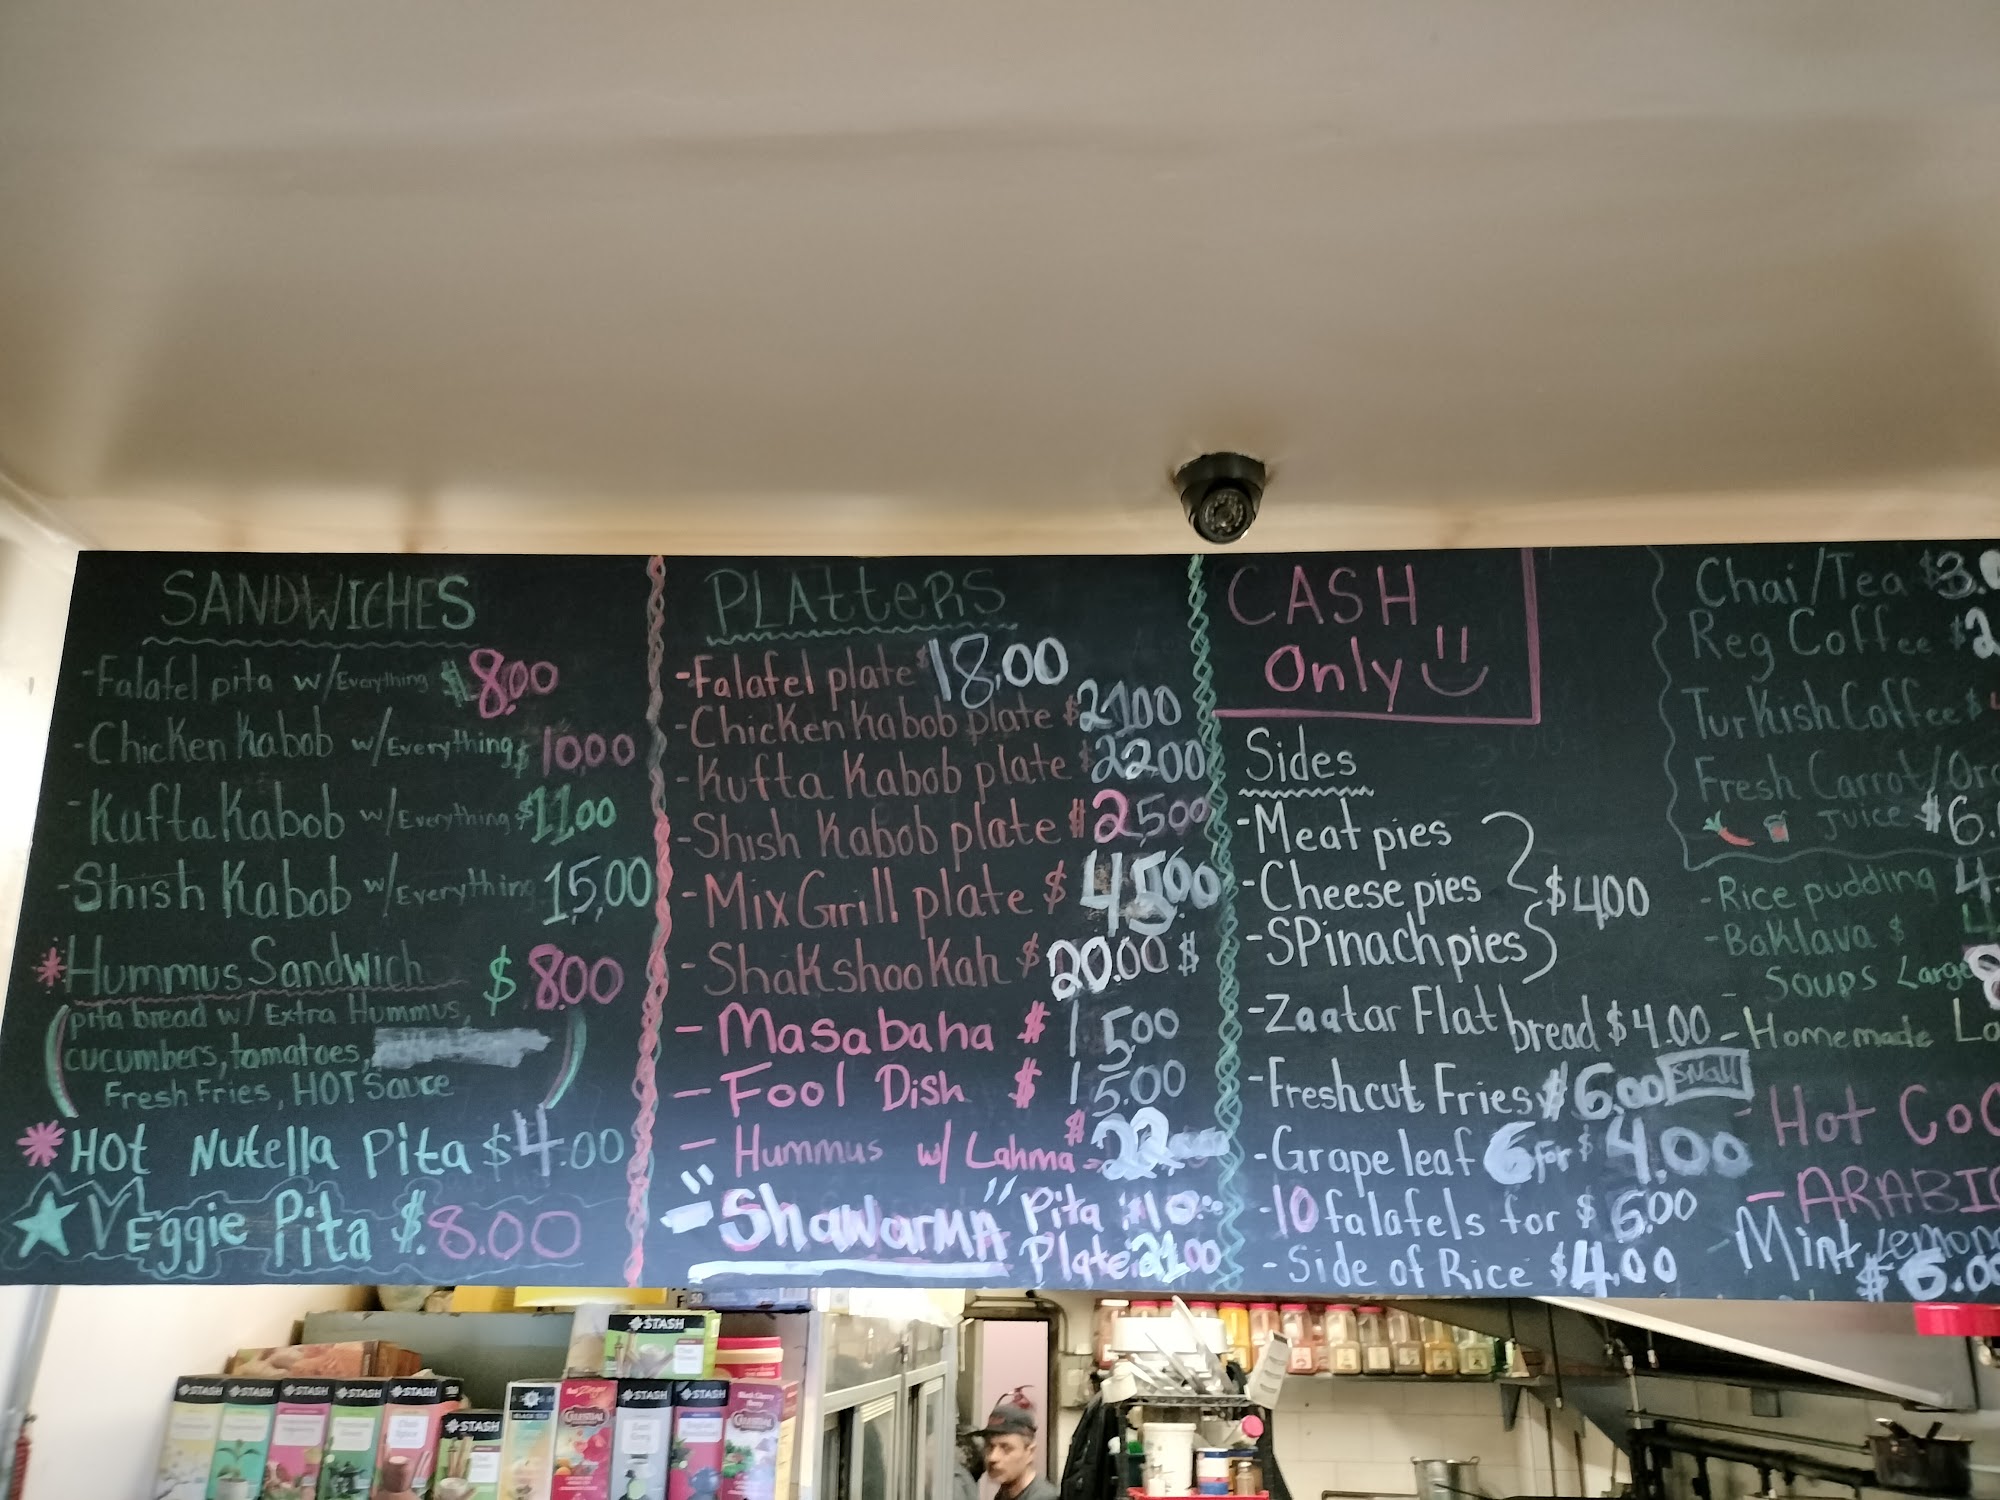 SANDWICHES
-Falafel pita w/Everything $8.00
-Chicken Kabob w/Everything $10.00
-Kufta Kabob w/Everything $11.00
-Shish Kabob w/Everything 15.00
*Hummus Sandwich $8.00
(pita bread w/ Extra Hummus,
cucumbers, tomatoes,
Fresh Fries, HOT Sauce)
*HOT Nutella Pita $4.00
Veggie Pita $8.00
PLAtteRS
-Falafel plate $18.00
-Chicken Kabob plate $21.00
-Kufta Kabob plate $22.00
-Shish Kabob plate $25.00
-Mix Grill plate $45.00
-ShakshooKah $20.00 $
-Masabaha $15.00
-Fool Dish $15.00
-Hummus w/ Lahma $22.00
-"ShawarMA" Pita $10.00
Plate 21.00
CASH
Only
Sides
-Meat pies
-Cheese pies $4.00
-SPinach pies
-Zaatar Flat bread $4.00
-Fresh cut Fries $6.00 Small
-Grape leaf 6 For $4.00
-10 falafels for $6.00
-Side of Rice $4.00
Chai/Tea $3.0
Reg Coffee $2
Turkish Coffee $
Fresh Carrot/Ora
Juice $6.
-Rice pudding 4.
-Baklava $ 4
-Soups Large 8
-Homemade La
-Hot CoC
-ARABIC
-Mint Lemon
$6.00
STASH
STASH
STASH
STASH
STASH
STASH
STASH
STASH
STASH
CELESTIAL
CELESTIAL